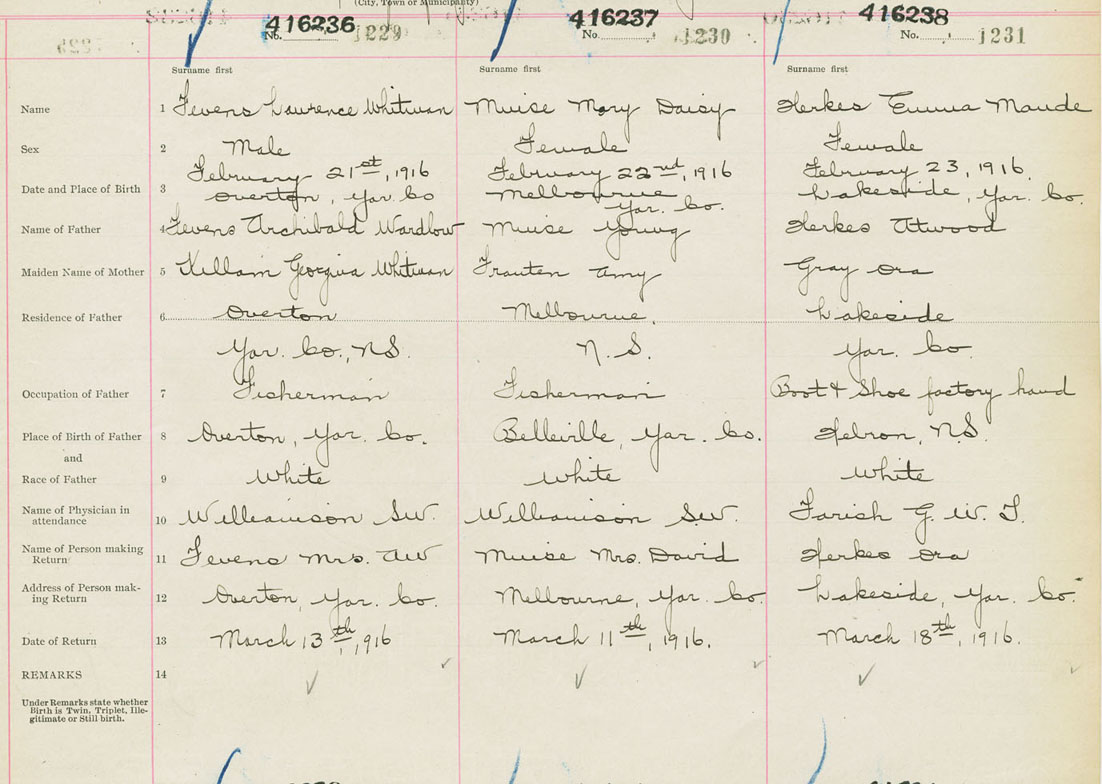 (City, Town or Municipality)
416236 416237 416238
No. 1229 No. 1230 No. 1231
Surname first Surname first Surname first
Name 1 Fevens Lawrence Whitman Muise Mary Daisy Herkes Emma Maude
Sex 2 Male Female Female
February 21st, 1916 February 22nd, 1916 February 23, 1916.
Date and Place of Birth 3 Overton, Yar. Co Melbourne Yar. Co. Lakeside, Yar. Co.
Name of Father 4 Fevens Archibald Wardlow Muise Young Herkes Atwood
Maiden Name of Mother 5 Killam Georgina Whitman Amy Gray Ora
Residence of Father 6 Overton Melbourne, Lakeside
Yar. Co., N.S. N. S. Yar. Co.
Occupation of Father 7 Fisherman Fisherman Boot & Shoe factory hand
Place of Birth of Father 8 Overton, Yar. Co. Belleville, Yar. Co. Hebron, N.S.
and
Race of Father 9 White White White
Name of Physician in
attendance 10 Williamson S.W. Williamson S.W. Farish G. W. T.
Name of Person making
Return 11 Fevens Mrs. AW Muise Mrs. David Herkes Ora
Address of Person mak-
ing Return 12 Overton, Yar. Co. Melbourne, Yar. Co. Lakeside, Yar. Co.
Date of Return 13 March 13th, 1916 March 11th, 1916. March 18th, 1916.
REMARKS 14
Under Remarks state whether
Birth is Twin, Triplet, Ille-
gitimate or Still birth.